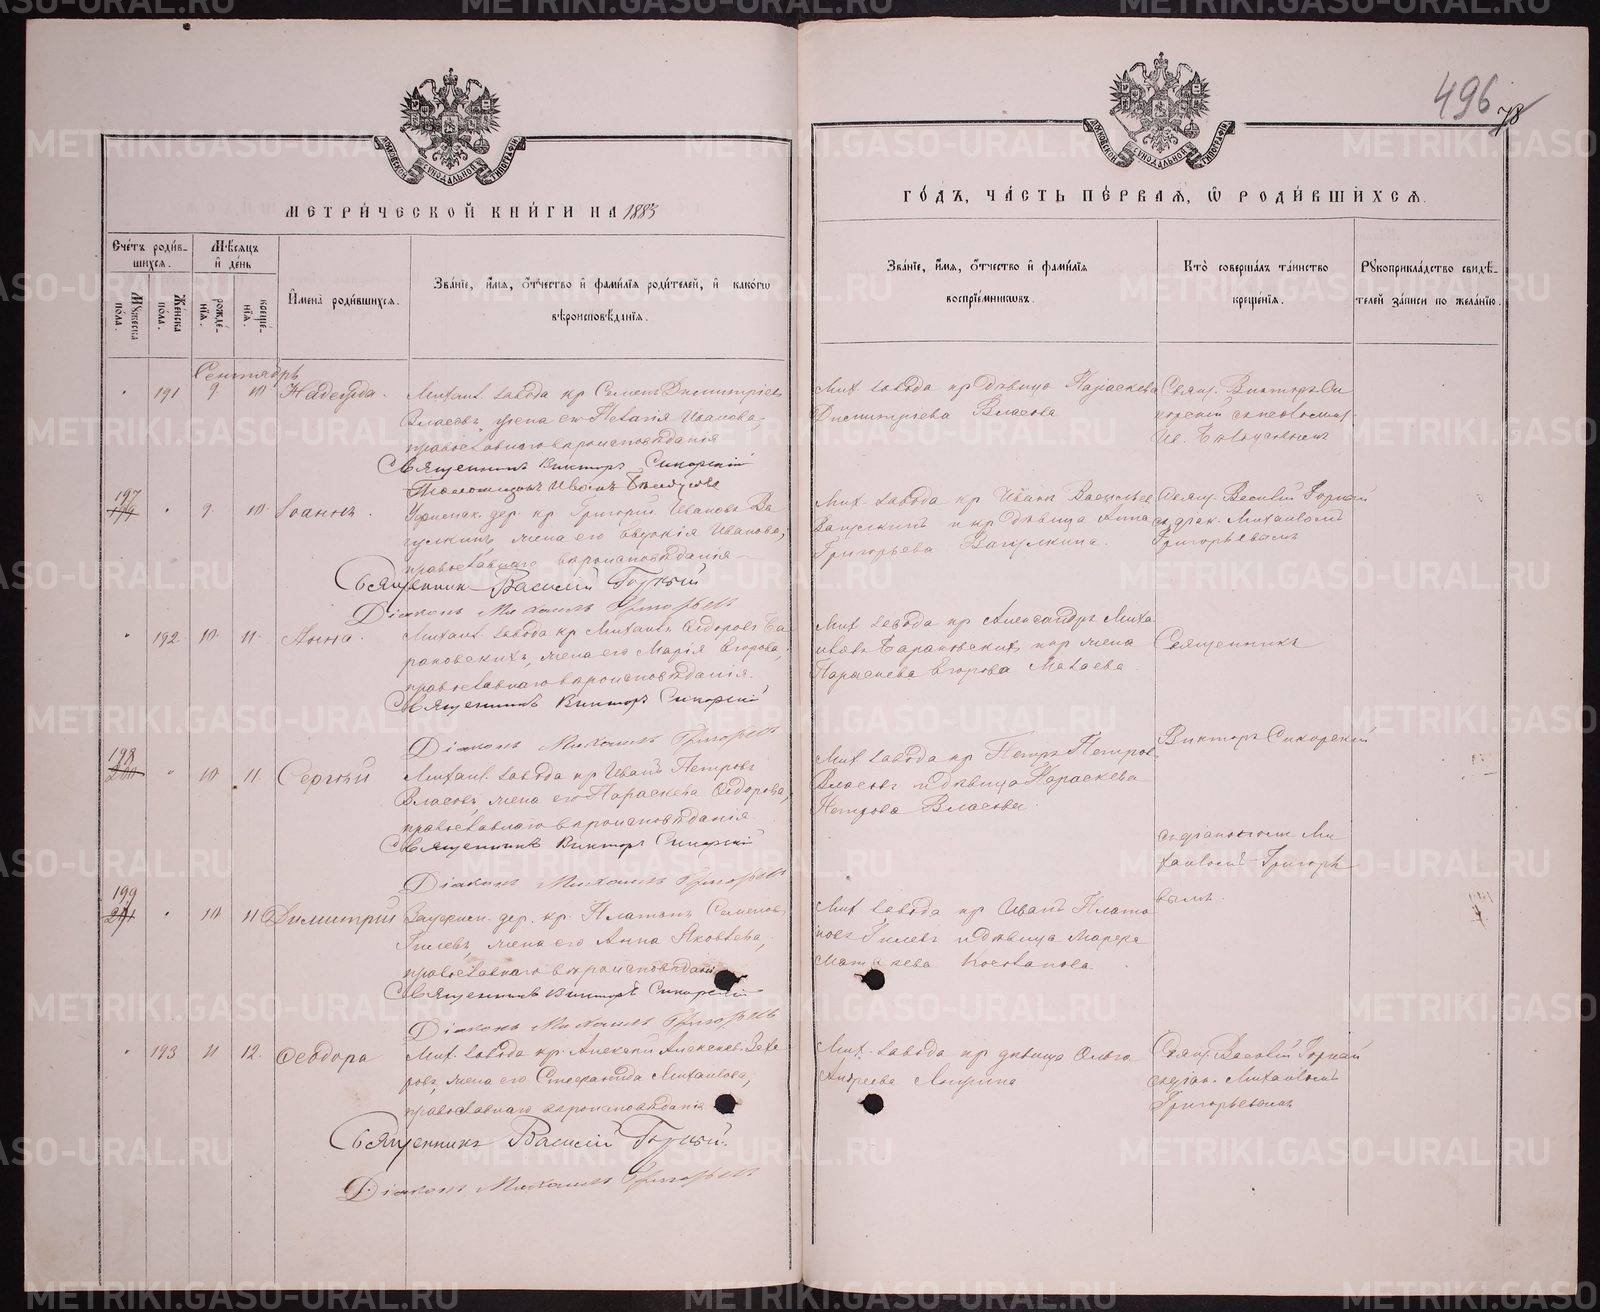 496
78
МЕТРИ́ЧЕСКОЙ КНИ́ГИ НА 1883
ГО́ДЪ, ЧА́СТЬ ПЕ́РВАЯ, Ѿ РОДИ́ВШИХСЯ.
Сче́тъ роди́в-
шихся.
Мѣ́сяцъ
и де́нь
Мꙋжеска
пола.
Же́нска
по́ла.
рожде́-
нїя.
креще́-
нїя.
И҆мена̀ роди́вшихся.
Зва́нїе, и҆́мя, ѻ҆́тчество и҆ фами́лїя роди́телей, и҆ како́гѡ
вѣроисповѣ́данїя.
Зва́нїе, и҆́мя, ѻ҆́тчество и҆ фами́лїя
воспрїе́мникѡвъ.
Кто̀ соверша́лъ та́инство
креще́нїя.
Рꙋкоприкла́дство свидѣ́-
телей за́писи по жела́нїю.
Сентябрь
191 9. 10 Надежда.
Михаил. завода кр Семенъ Димитріевъ
Власовъ, жена его Пелагія Иванова,
православнаго вѣроисповѣданія
Священникъ Викторъ Сикорскій
Псаломщикъ Иванъ
Мих. завода кр дѣвица Параскева
Димитріева Власова
Свящ. Викторъ Си
корскій
197 9. 10. Іоаннъ.
дер. кр Григорій Ивановъ Ва
гулкинъ, жена его Евдокія Иванова,
православнаго вѣроисповѣданія
Священникъ Василій Горный
Діаконъ Михаилъ Григорьевъ
Мих. завода кр Иванъ Васильевъ
и кр дѣвица Анна
Григорьева Вагулкина.
Свящ. Василій Горный
съ діак. Михаиломъ
Григорьевымъ
192 10. 11. Анна.
Михаил. завода кр Михаилъ Ѳедоровъ Ба
рановскихъ, жена его Марія Егорова,
православнаго вѣроисповѣданія.
Священникъ Викторъ Сикорскій
Діаконъ Михаилъ Григорьевъ
Мих завода кр Александръ Миха
иловъ Барановскихъ и кр жена
Параскева Егорова
Священникъ
198 10 11. Сергѣй
Михаил. завода кр Иванъ Петровъ
Власовъ, жена его Параскева Ѳедорова,
православнаго вѣроисповѣданія
Священникъ Викторъ Сикорскій
Діаконъ Михаилъ Григорьевъ
Мих завода кр Петръ Петровъ
Власовъ и дѣвица Параскева
Петрова Власова.
Викторъ Сикорскій
съ діакономъ Ми
хаиломъ Григорье
вымъ.
199 201 10 11 Димитрій
дер. кр. Платонъ Семеновъ
Гилевъ, жена его Анна Яковлева,
православнаго вѣроисповѣданія
Священникъ Викторъ Сикорскій
Діаконъ Михаилъ Григорьевъ
Мих завода кр Иванъ Плато
новъ Гилевъ и дѣвица
193 11 12. Ѳеодора
Мих. завода кр. Алексѣй Алексѣев.
ровъ, жена его Стефанида Михаилова,
православнаго вѣроисповѣданія
Священникъ Василій Горный.
Діаконъ Михаилъ Григорьевъ
Мих. завода кр дѣвица Ольга
Андреева
Свящ. Василій Горный
съ діак. Михаиломъ
Григорьевымъ